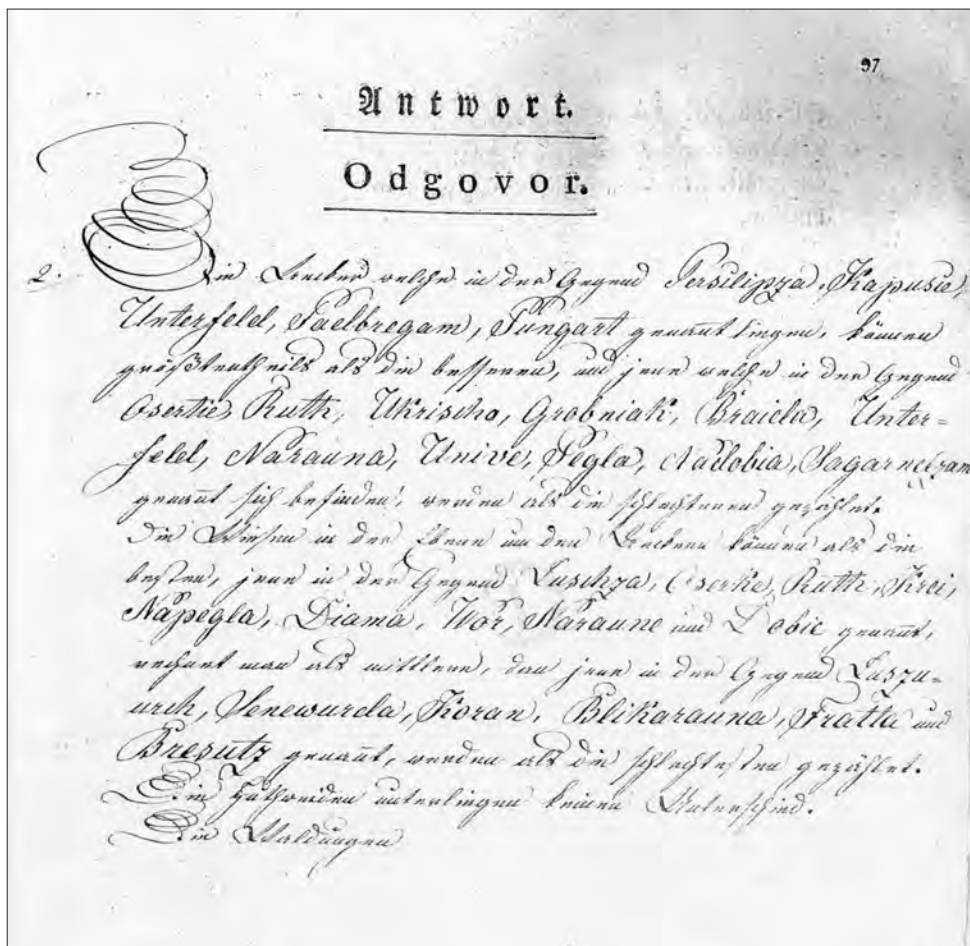 97
Antwort.
Odgovor.
2. Die Aecker welche in der Gegend Persilipza, Kapusie,
Unterfeld, Paelbregam, Pungart genannt liegen, können
größtentheils als die besseren, und jene welche in der Gegend
Osertie, Ruth, Ukrischo, Grobniak, Braida, Unter=
feld, Narauna, Unive, Pegla, Nadobia, Sagarnelzam
genannt sich befinden, werden als die schlechteren gezählet.
Die Wiesen in der Ebene um den Aeckern können als die
besten, jene in der Gegend Luschza, Oserke, Ruth, Krei,
Napegla, Diama, Wor, Naraune und Dobie genannt,
rechnet man als mittlere, dan jene in der Gegend Luszu=
urch, Senewurda, Koran, Blikarauna, Fratta und
Bresutz genannt, werden als die schlechtesten gezählet.
Die Huthweiden unterliegen keinen Unterschied.
Die Waldungen